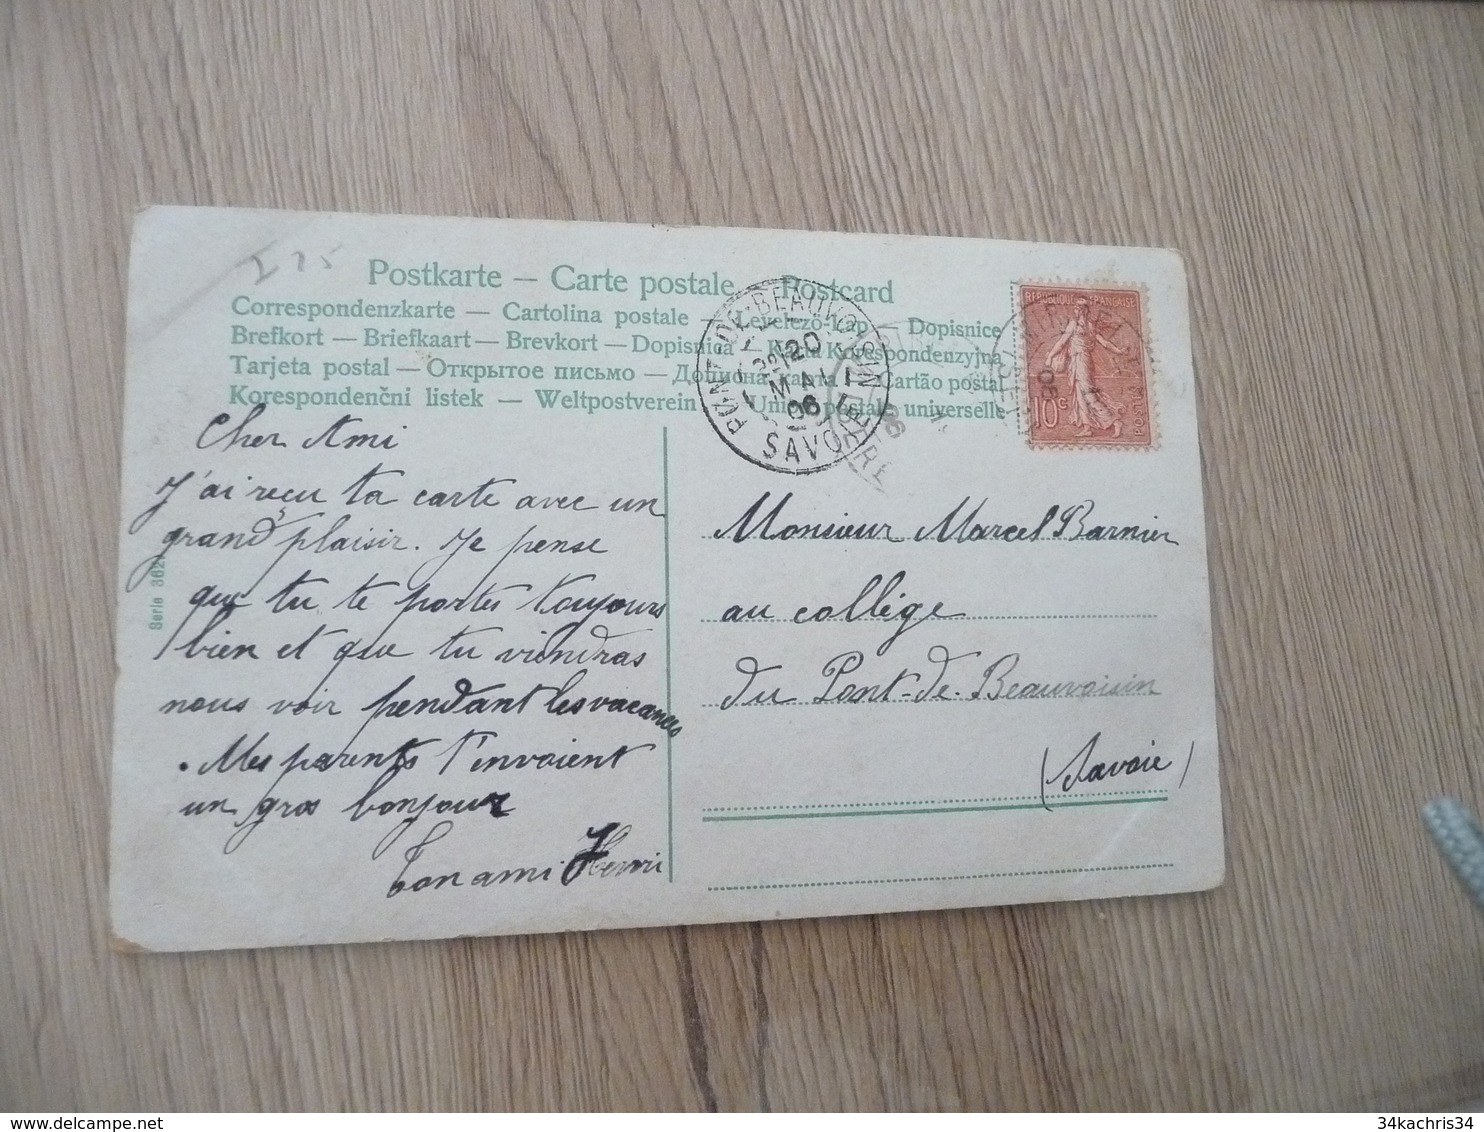 I 75
Postkarte — Carte postale — Postcard
Correspondenzkarte — Cartolina postale — Levelezö-Lap — Dopisnice
Brefkort — Briefkaart — Brevkort — Dopisnica — Karta Korespondenzyjna
Tarjeta postal — Открытое письмо — Дописна карта — Cartão postal
Korespondenční listek — Weltpostverein — Union postale universelle
PONT-DE-BEAUVOISIN
20
MAI
06
SAVOIE
REPUBLIQUE FRANÇAISE
10c
POSTES
Serie 362
Cher Ami
J'ai reçu ta carte avec un
grand plaisir. Je pense
que tu te portes toujours
bien et que tu viendras
nous voir pendant les vacances
. Mes parents t'envoient
un gros bonjour
Ton ami Henri
Monsieur Marcel Barnier
au collège
du Pont-de-Beauvoisin
(Savoie)
34kachris34